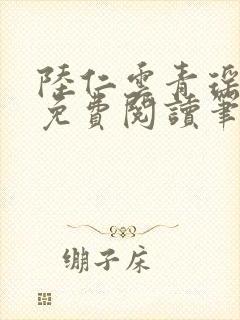 陸仁雲青瑶
免費閱讀筆
绷子床